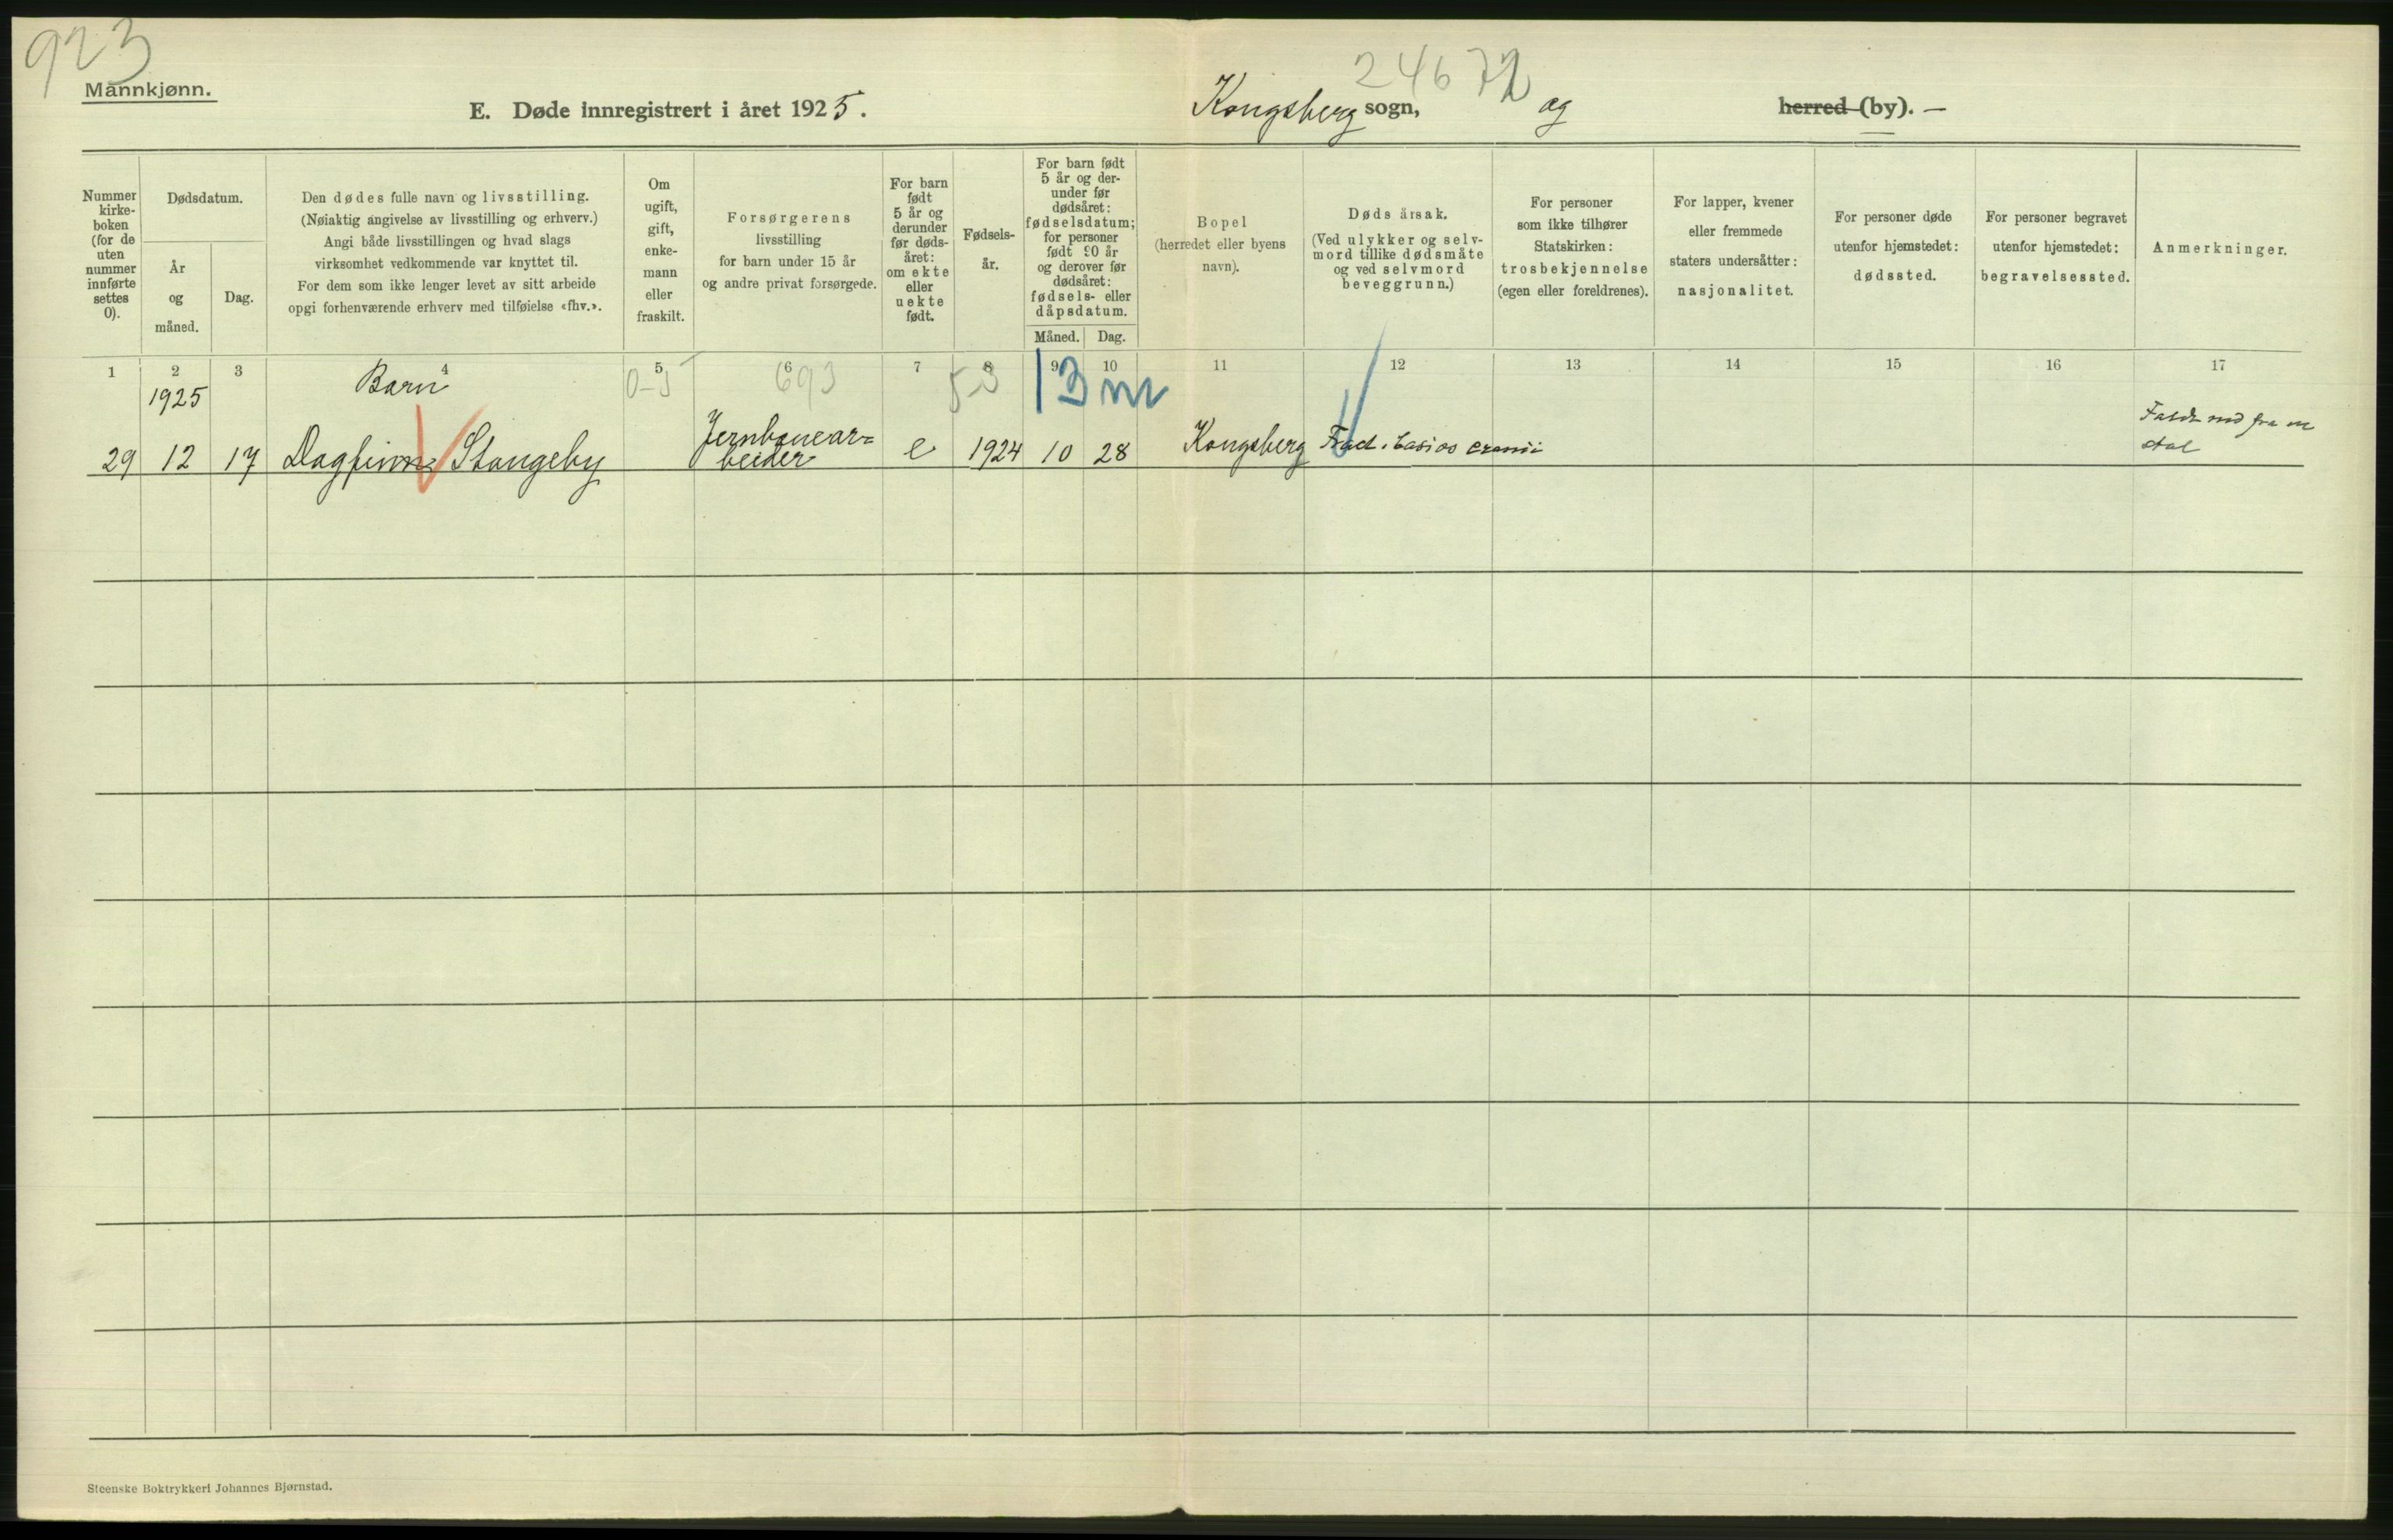 923
Mannkjønn.
E. Døde innregistrert i året 1925.
24672
Kongsberg sogn, og herred (by). —
Nummer
kirke-
boken
(for de
uten
nummer
innførte
settes
0).
Dødsdatum.
År
og
måned.
Dag.
Den dødes fulle navn og livsstilling.
(Nøiaktig angivelse av livsstilling og erhverv.)
Angi både livsstillingen og hvad slags
virksomhet vedkommende var knyttet til.
For dem som ikke lenger levet av sitt arbeide
opgi forhenværende erhverv med tilføielse «fhv.».
Om
ugift,
gift,
enke-
mann
eller
fraskilt.
Forsørgerens
livsstilling
for barn under 15 år
og andre privat forsørgede.
For barn
født
5 år og
derunder
før døds-
året:
om ekte
eller
uekte
født.
Fødsels-
år.
For barn født
5 år og der-
under før
dødsåret:
fødselsdatum;
for personer
født 90 år
og derover før
dødsåret:
fødsels- eller
dåpsdatum.
Måned. Dag.
Bopel
(herredet eller byens
navn).
Dødsårsak.
(Ved ulykker og selv-
mord tillike dødsmåte
og ved selvmord
beveggrunn.)
For personer
som ikke tilhører
Statskirken:
trosbekjennelse
(egen eller foreldrenes).
For lapper, kvener
eller fremmede
staters undersåtter:
nasjonalitet.
For personer døde
utenfor hjemstedet:
dødssted.
For personer begravet
utenfor hjemstedet:
begravelsessted.
Anmerkninger.
1 2 3 4 5 6 7 8 9 10 11 12 13 14 15 16 17
1925 Barn 0-5 693 13 m
29 12 17 Dagfinn Stangeby Jernbanear=
beider e 1924 10 28 Kongsberg Fract. basios cranii
fra en
stol
Steenske Boktrykkeri Johannes Bjørnstad.